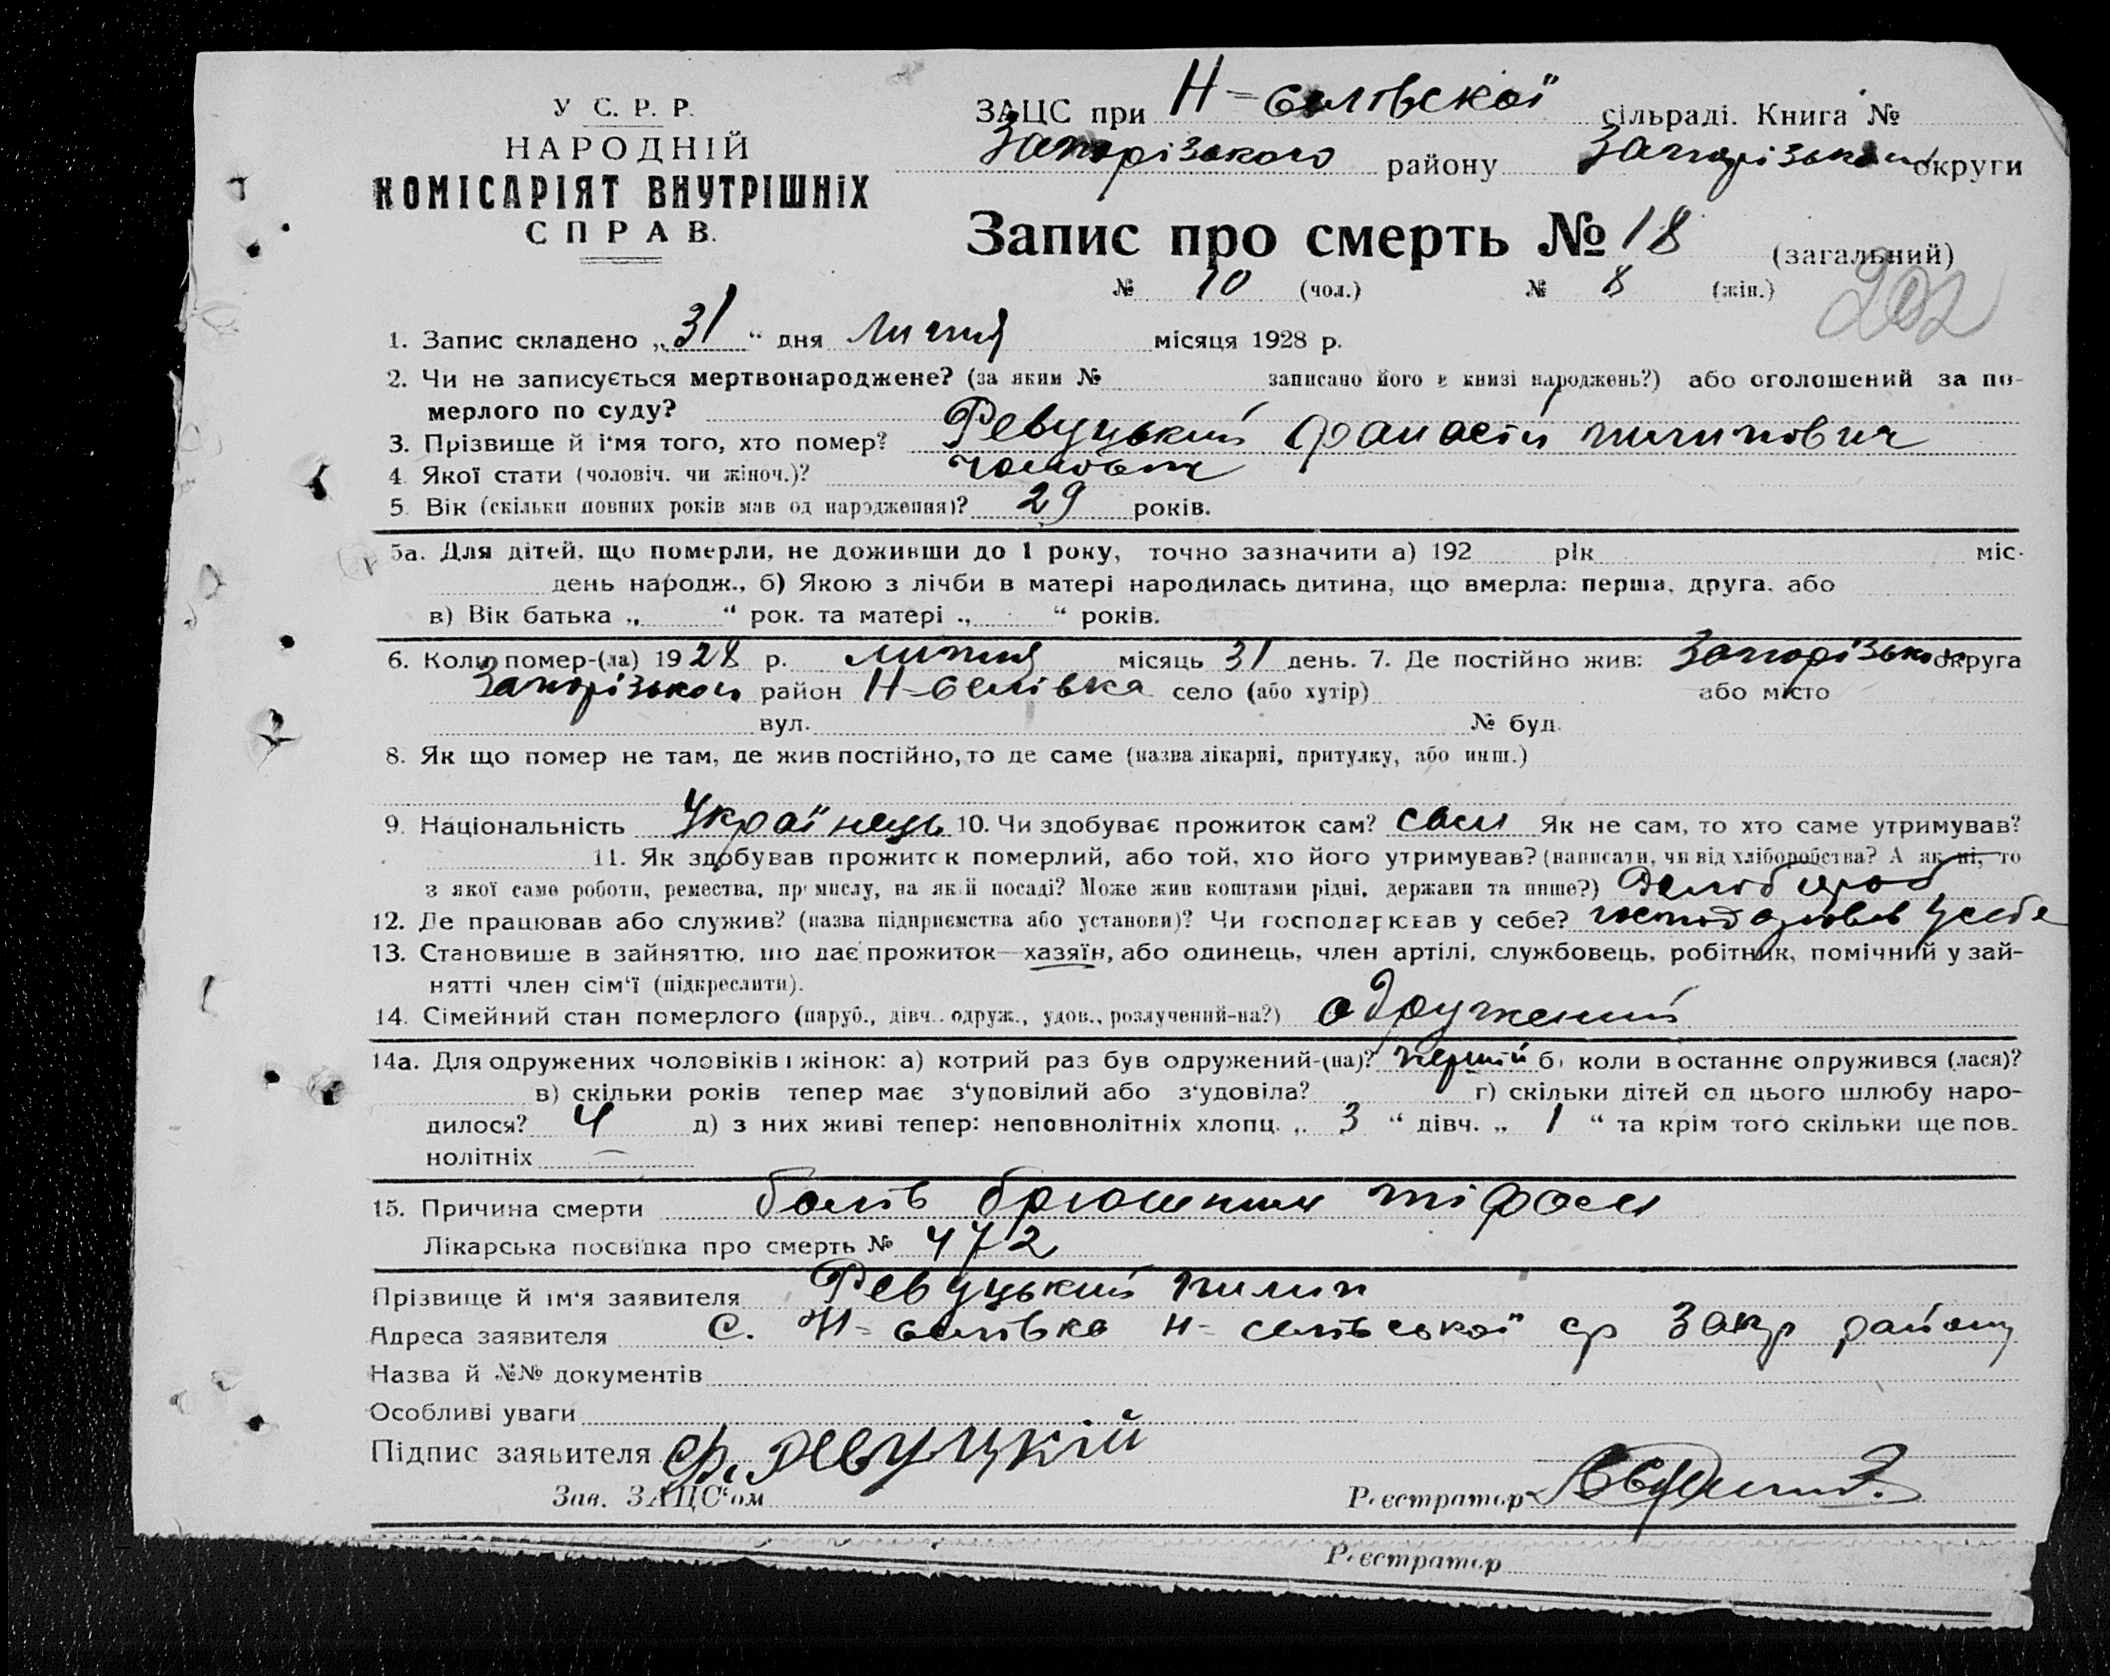 У С. Р. Р.
НАРОДНІЙ
КОМІСАРІЯТ ВНУТРІШНІХ
СПРАВ.
ЗАЦС при Н= сілівскої сільраді. Книга №
Запорізького району Запорізької округи
Запис про смерть № 18 (загальний)
№ 10 (чол.) № 8 (жін.)
202
1. Запис складено „31“ дня Липня місяця 1928 р.
2. Чи не записується мертвонароджене? (за яким № записано його в книзі народжень?) або оголошений за по-
мерлого по суду?
3. Прізвище й ім'я того, хто помер? Ревуцький Фанасій пилипович
4. Якої стати (чоловіч. чи жіноч.)? чоловіч
5. Вік (скільки повних років мав од народження)? 29 років.
5а. Для дітей, що померли, не доживши до 1 року, точно зазначити а) 192 рік міс.
день народж., б) Якою з лічби в матері народилась дитина, що вмерла: перша, друга, або
в) Вік батька „ “ рок. та матері „ “ років.
6. Коли помер-(ла) 1928 р. липня місяць 31 день. 7. Де постійно жив: Запорізької округа
Запорізького район Н-селівка село (або хутір) або місто
вул. № буд.
8. Як що помер не там, де жив постійно, то де саме (назва лікарні, притулку, або инш.)
9. Національність Українець 10. Чи здобуває прожиток сам? сам Як не сам, то хто саме утримував?
11. Як здобував прожиток померлий, або той, хто його утримував? (написати, чи від хліборобства? А як ні, то
з якої саме роботи, ремества, промислу, на якій посаді? Може жив коштами рідні, держави та инше?)
12. Де працював або служив? (назва підприємства або установи)? Чи господарював у себе? господарював у себе
13. Становище в зайняттю, що дає прожиток—хазяїн, або одинець, член артілі, службовець, робітник, помічний у зай-
нятті член сім'ї (підкреслити).
14. Сімейний стан померлого (паруб., дівч. одруж., удов., розлучений-на?) одружений
14а. Для одружених чоловіків і жінок: а) котрий раз був одружений-(на)? перший б) коли востаннє одружився (лася)?
в) скільки років тепер має з'удовілий або з'удовіла? г) скільки дітей од цього шлюбу наро-
дилося? 4 д) з них живі тепер: неповнолітніх хлопц. „ 3 “ дівч. „ 1 “ та крім того скільки ще пов-
нолітніх —
15. Причина смерти болів брюшним тіфом
Лікарська посвідка про смерть № 472
Прізвище й ім'я заявителя Ревуцький пилип
Адреса заявителя с. Н= селівка Н= селівської ср Запор району
Назва й №№ документів
Особливі уваги
Підпис заявителя Ф. Ревуцкій
Зав. ЗАЦС'ом Реєстратор
Реєстратор